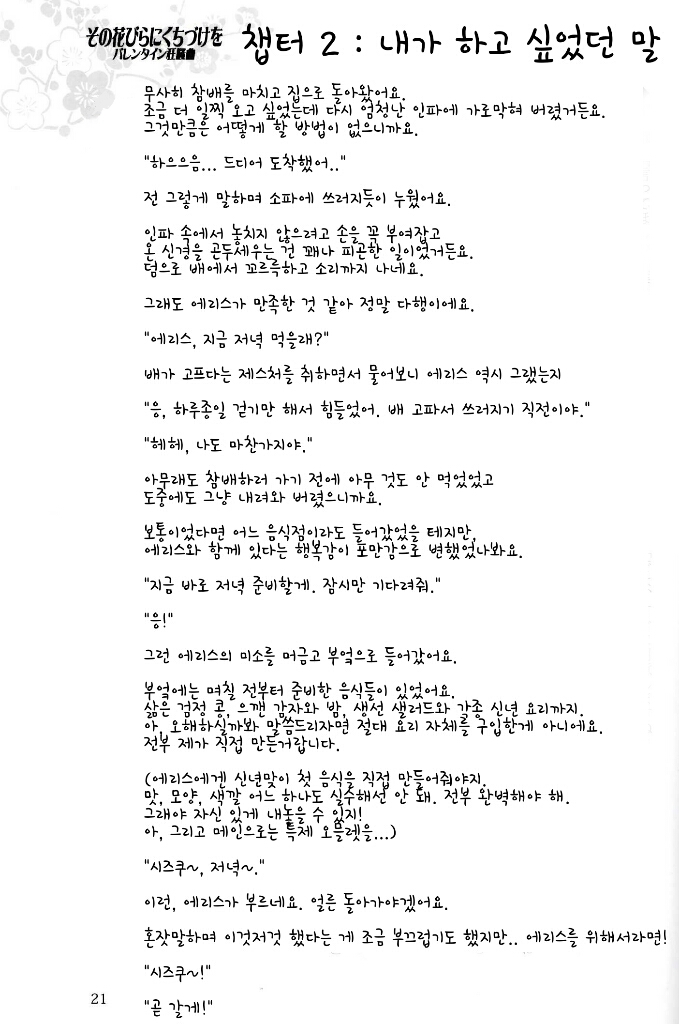 その花びらにくちづけを
バレンタイン狂騒曲
챕터 2 : 내가 하고 싶었던 말
무사히 참배를 마치고 집으로 돌아왔어요.
조금 더 일찍 오고 싶었는데 다시 엄청난 인파에 가로막혀 버렸거든요.
그것만큼은 어떻게 할 방법이 없으니까요.
"하으으음... 드디어 도착했어.."
전 그렇게 말하며 소파에 쓰러지듯이 누웠어요.
인파 속에서 놓치지 않으려고 손을 꼭 부여잡고
온 신경을 곤두세우는 건 꽤나 피곤한 일이었거든요.
덤으로 배에서 꼬르륵하고 소리까지 나네요.
그래도 에리스가 만족한 것 같아 정말 다행이에요.
"에리스, 지금 저녁 먹을래?"
배가 고프다는 제스처를 취하면서 물어보니 에리스 역시 그랬는지
"응, 하루종일 걷기만 해서 힘들었어. 배 고파서 쓰러지기 직전이야."
"헤헤, 나도 마찬가지야."
아무래도 참배하러 가기 전에 아무 것도 안 먹었었고
도중에도 그냥 내려와 버렸으니까요.
보통이었다면 어느 음식점이라도 들어갔었을 테지만,
에리스와 함께 있다는 행복감이 포만감으로 변했었나봐요.
"지금 바로 저녁 준비할게. 잠시만 기다려줘."
"응!"
그런 에리스의 미소를 머금고 부엌으로 들어갔어요.
부엌에는 며칠 전부터 준비한 음식들이 있었어요.
삶은 검정 콩, 으깬 감자와 밤, 생선 샐러드와 각종 신년 요리까지.
아, 오해하실까봐 말씀드리자면 절대 요리 자체를 구입한게 아니에요.
전부 제가 직접 만든거랍니다.
(에리스에겐 신년맞이 첫 음식을 직접 만들어줘야지.
맛, 모양, 색깔 어느 하나도 실수해선 안 돼. 전부 완벽해야 해.
그래야 자신 있게 내놓을 수 있지!
아, 그리고 메인으로는 특제 오믈렛을...)
"시즈쿠~, 저녁~."
이런, 에리스가 부르네요. 얼른 돌아가야겠어요.
혼잣말하며 이것저것 했다는 게 조금 부끄럽기도 했지만.. 에리스를 위해서라면!
"시즈쿠~!"
"곧 갈게!"
21